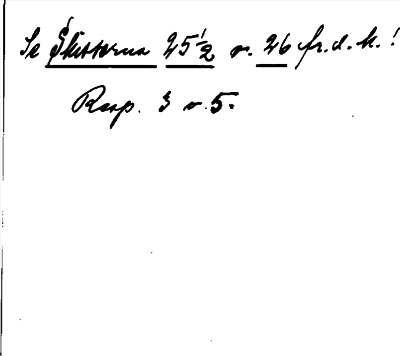 Se Skisserna 25 1/2 o. 26 fr. d. h.!
Resp. 3 o. 5.